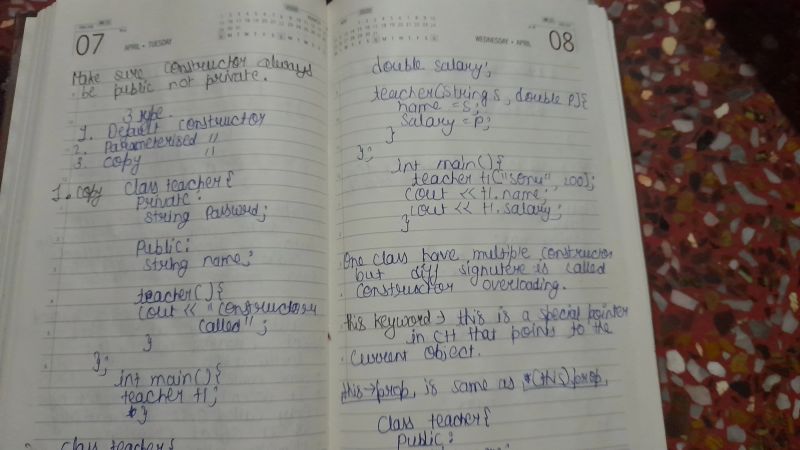 07
APRIL • TUESDAY
Make sure constructor always
be public not private.
3 type.
1. Default constructor
2. Parameterised "
3. copy "
1. copy class teacher{
private:
string password;
Public:
string name;
teacher(){
cout << "constructor
called";
}
};
int main(){
teacher t1;
}
class teacher{
WEDNESDAY • APRIL
08
double salary;
teacher(string s, double p){
name = s;
salary = p;
}
};
int main(){
teacher t1("sonu", 200);
cout << t1.name;
cout << t1.salary;
}
One class have multiple constructor
but diff signutere is called
constructor overloading.
this keyword → this is a special pointer
in C++ that points to the
current object.
this->prop, is same as *(this).prop,
class teacher{
public: